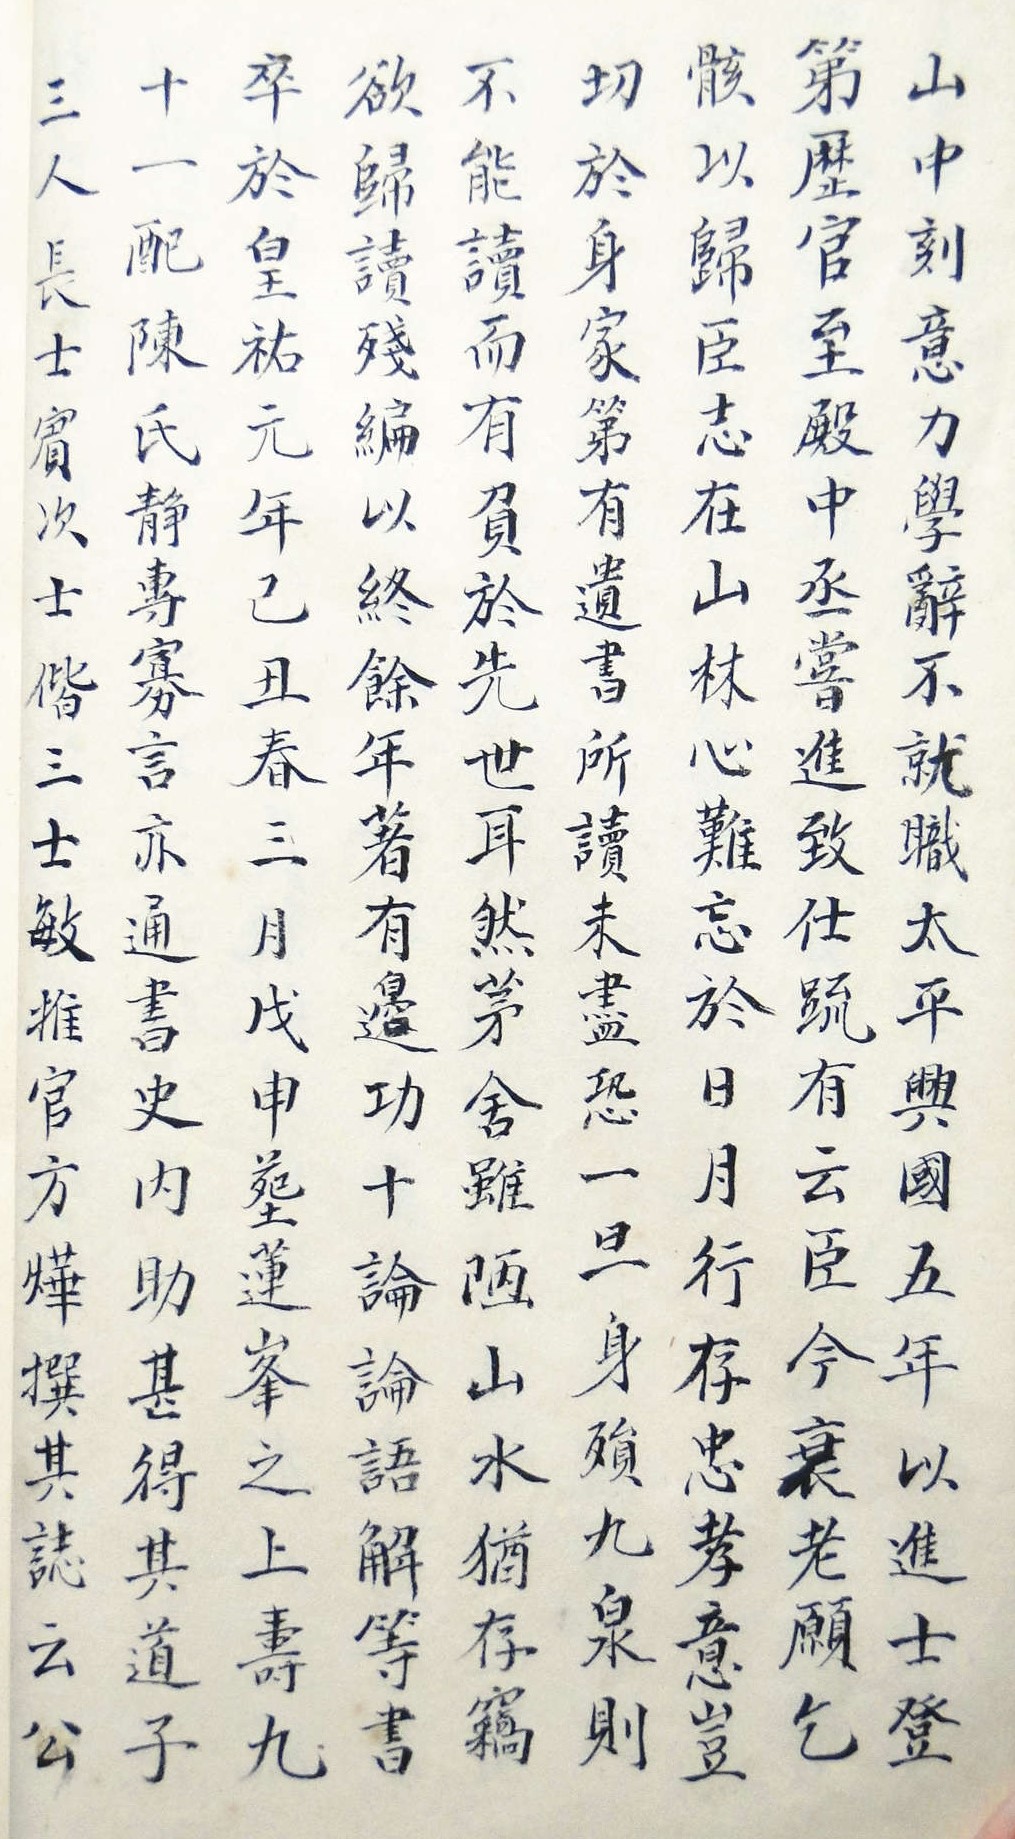 山中刻意力學辭不就職太平興國五年以進士登
第歷官至殿中丞嘗進致仕疏有云臣今衰老願乞
骸以歸臣志在山林心難忘於日月行存忠孝意豈
切於身家第有遺書所讀未盡恐一旦身殞九泉則
不能讀而有負於先世耳然茅舍雖陋山水猶存竊
欲歸讀殘編以終餘年著有邊功十論論語解等書
卒於皇祐元年己丑春三月戊申塟蓮峯之上壽九
十一配陳氏靜專寡言亦通書史内助甚得其道子
三人長士賓次士偕三士敏推官方燁撰其誌云公